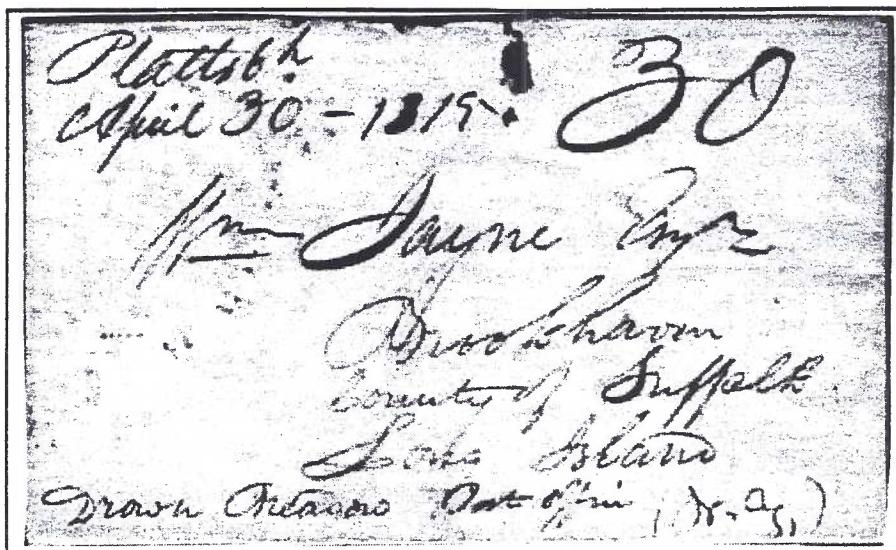 Plattsbh 30
April 30 - 1819
Wm Jayne Esqr
Brookhaven
County of Suffolk
Long Island
Drown Post office (N.Y.)